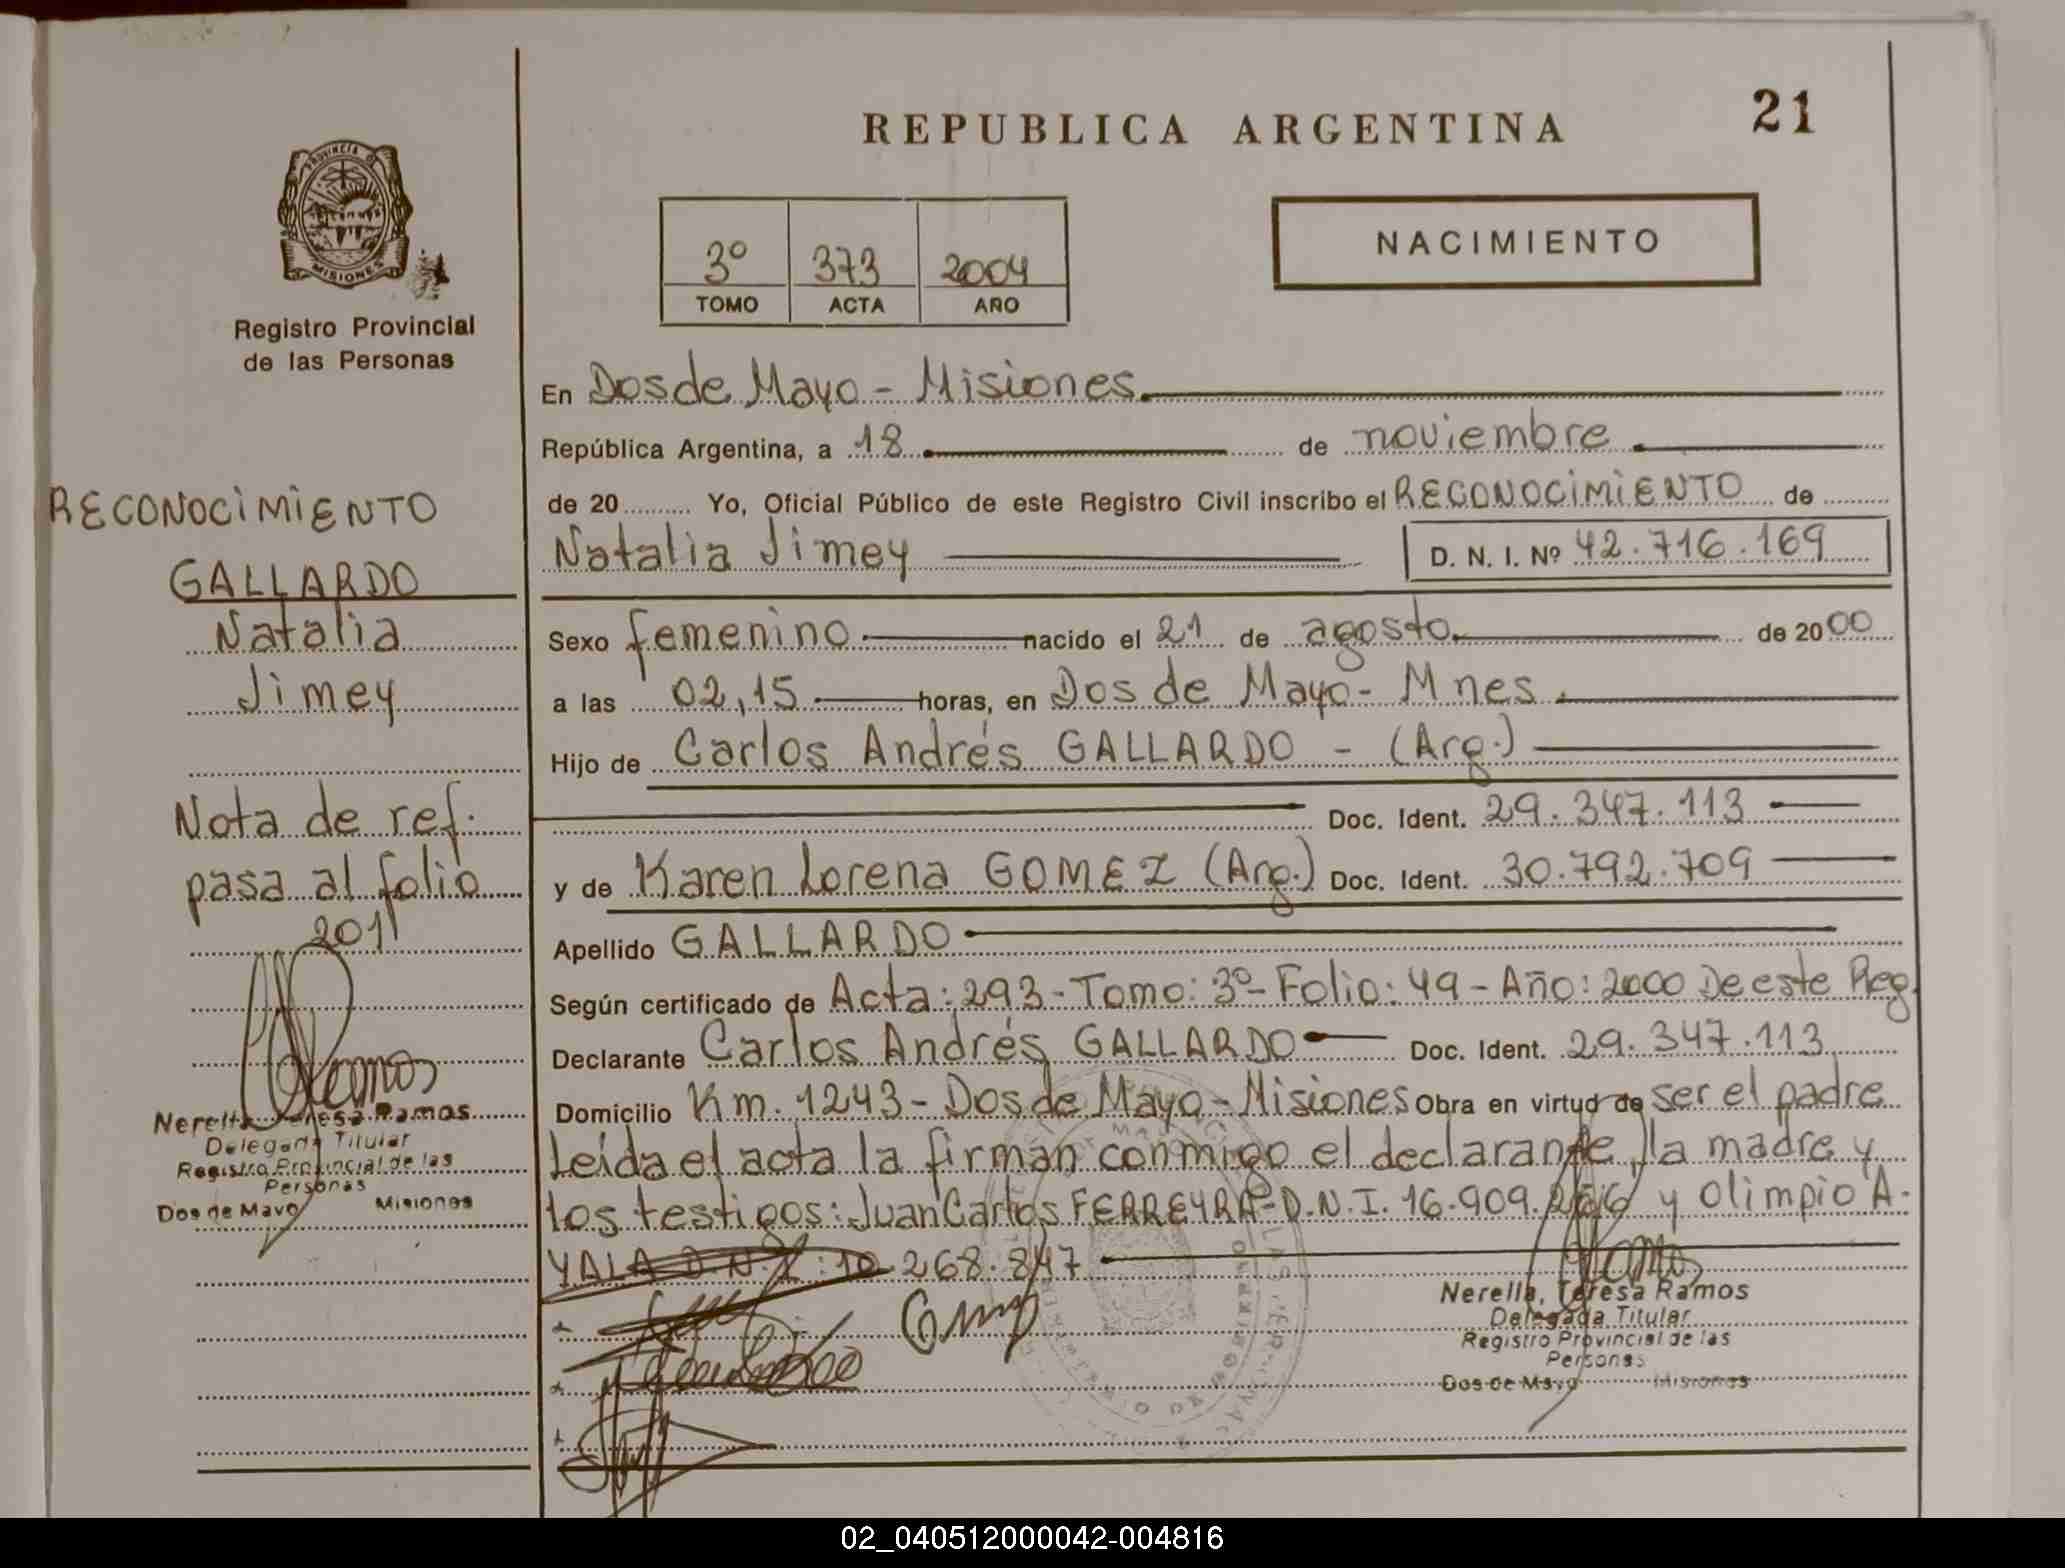 REPUBLICA ARGENTINA
21
PROVINCIA DE
MISIONES
Registro Provincial
de las Personas
3º 373 2004
TOMO ACTA AÑO
NACIMIENTO
En Dos de Mayo - Misiones
República Argentina, a 18 de noviembre
de 20 Yo, Oficial Público de este Registro Civil inscribo el RECONOCIMIENTO de
Natalia Jimey D. N. I. Nº 42.716.169
Sexo femenino nacido el 21 de agosto de 2000
a las 02,15 horas, en Dos de Mayo - Mnes.
Hijo de Carlos Andrés GALLARDO - (Arg.)
Doc. Ident. 29.347.113
y de Karen Lorena GOMEZ (Arg.) Doc. Ident. 30.792.709
Apellido GALLARDO
Según certificado de Acta: 293 - Tomo: 3º - Folio: 49 - Año: 2000 De este Reg.
Declarante Carlos Andrés GALLARDO Doc. Ident. 29.347.113
Domicilio Km. 1243 - Dos de Mayo - Misiones Obra en virtud de ser el padre
Leída el acta la firman conmigo el declarante, la madre y
los testigos: Juan Carlos FERREYRA - D.N.I. 16.909. y Olimpio A.
YALA D.N.I: 10 268.847
Nerella, Teresa Ramos
Delegada Titular
Registro Provincial de las
Personas
Dos de Mayo Misiones
RECONOCIMIENTO
GALLARDO
Natalia
Jimey
Nota de ref.
pasa al folio
201
Nerella Teresa Ramos
Delegada Titular
Registro Provincial de las
Personas
Dos de Mayo Misiones
02_040512000042-004816